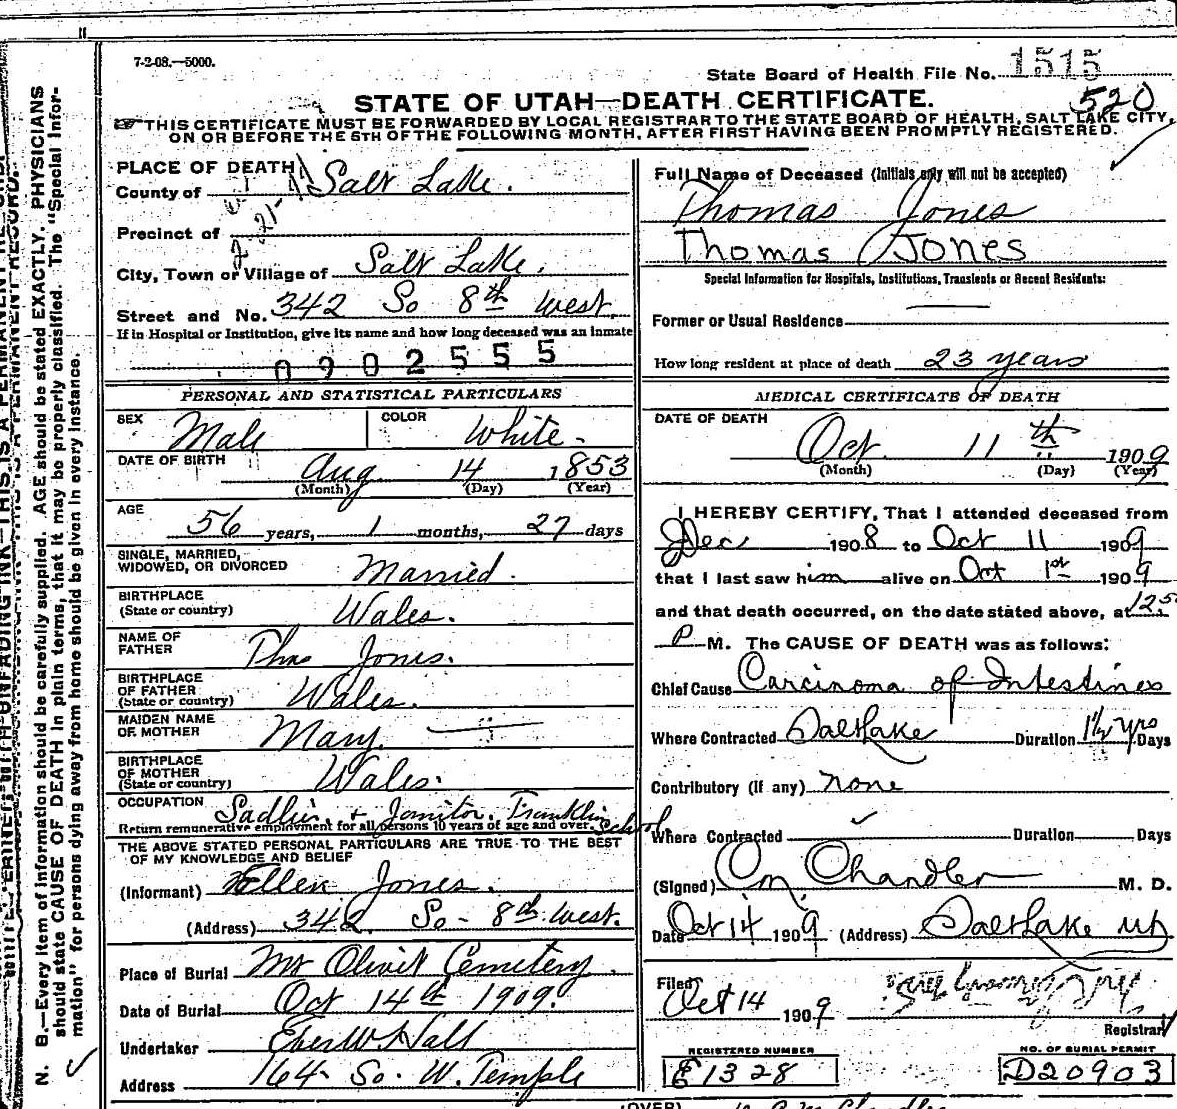 7-2-08.—5000.
State Board of Health File No. 1515
STATE OF UTAH—DEATH CERTIFICATE.
520
THIS CERTIFICATE MUST BE FORWARDED BY LOCAL REGISTRAR TO THE STATE BOARD OF HEALTH, SALT LAKE CITY,
ON OR BEFORE THE 5TH OF THE FOLLOWING MONTH, AFTER FIRST HAVING BEEN PROMPTLY REGISTERED.
N. B.—Every item of information should be carefully supplied. AGE should be stated EXACTLY. PHYSICIANS
should state CAUSE OF DEATH in plain terms, that it may be properly classified. The "Special Infor-
mation" for persons dying away from home should be given in every instance.
PLACE OF DEATH
County of Salt Lake.
Precinct of
City, Town or Village of Salt Lake.
Street and No. 342 So 8th West.
If in Hospital or Institution, give its name and how long deceased was an inmate
0902555
PERSONAL AND STATISTICAL PARTICULARS
SEX Male COLOR White
DATE OF BIRTH Aug 14 1853
(Month) (Day) (Year)
AGE 56 years, 1 months, 27 days
SINGLE, MARRIED,
WIDOWED, OR DIVORCED Married.
BIRTHPLACE
(State or country) Wales.
NAME OF
FATHER Thos Jones.
BIRTHPLACE
OF FATHER
(State or country) Wales.
MAIDEN NAME
OF MOTHER Mary
BIRTHPLACE
OF MOTHER
(State or country) Wales.
OCCUPATION Sadlier + Janitor Franklin School
Return remunerative employment for all persons 10 years of age and over.
THE ABOVE STATED PERSONAL PARTICULARS ARE TRUE TO THE BEST
OF MY KNOWLEDGE AND BELIEF
(Informant) Ellen Jones.
(Address) 342 So - 8th West.
Place of Burial Mt Olivit Cemetery.
Date of Burial Oct 14th 1909.
Undertaker Eber W Hall
Address 164 So. W. Temple
Full Name of Deceased (Initials only will not be accepted)
Thomas Jones
Thomas Jones
Special Information for Hospitals, Institutions, Transients or Recent Residents:
Former or Usual Residence
How long resident at place of death 23 years
MEDICAL CERTIFICATE OF DEATH
DATE OF DEATH
Oct 11th 1909
(Month) (Day) (Year)
I HEREBY CERTIFY, That I attended deceased from
Dec 1908 to Oct 11 1909
that I last saw him alive on Oct 1st 1909
and that death occurred, on the date stated above, at
P M. The CAUSE OF DEATH was as follows:
Chief Cause Carcinoma of Intestines
Where Contracted Salt Lake Duration 1½ yrs Days
Contributory (if any) none
Where Contracted Duration Days
(Signed) Chandler M. D.
Date Oct 14 1909 (Address) Salt Lake
Filed Oct 14 1909
Registrar
REGISTERED NUMBER NO. OF BURIAL PERMIT
E1328 D20903
(OVER)